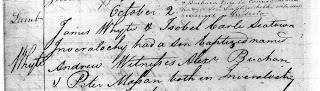 October 2
Lamb James Whyte & Isobel Carle Seatown
Inveralochy had a son baptized named
Whyte Andrew Witnesses Alexr Buchan
& Peter Mason both in Inveralochy